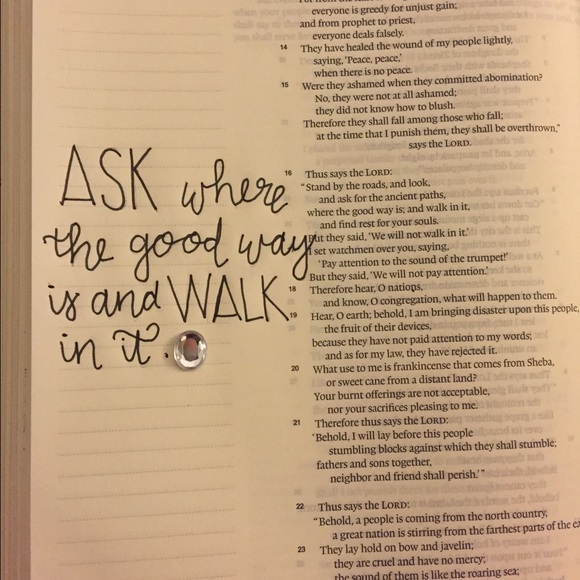 ASK where
the good way
is and WALK
in it.
everyone is greedy for unjust gain;
and from prophet to priest,
everyone deals falsely.
14 They have healed the wound of my people lightly,
saying, 'Peace, peace,'
when there is no peace.
15 Were they ashamed when they committed abomination?
No, they were not at all ashamed;
they did not know how to blush.
Therefore they shall fall among those who fall;
at the time that I punish them, they shall be overthrown,"
says the LORD.
16 Thus says the LORD:
"Stand by the roads, and look,
and ask for the ancient paths,
where the good way is; and walk in it,
and find rest for your souls.
But they said, 'We will not walk in it.'
I set watchmen over you, saying,
'Pay attention to the sound of the trumpet!'
But they said, 'We will not pay attention.'
18 Therefore hear, O nations,
and know, O congregation, what will happen to them.
19 Hear, O earth; behold, I am bringing disaster upon this people,
the fruit of their devices,
because they have not paid attention to my words;
and as for my law, they have rejected it.
20 What use to me is frankincense that comes from Sheba,
or sweet cane from a distant land?
Your burnt offerings are not acceptable,
nor your sacrifices pleasing to me.
21 Therefore thus says the LORD:
'Behold, I will lay before this people
stumbling blocks against which they shall stumble;
fathers and sons together,
neighbor and friend shall perish.'"
22 Thus says the LORD:
"Behold, a people is coming from the north country,
a great nation is stirring from the farthest parts of the
23 They lay hold on bow and javelin;
they are cruel and have no mercy;
the sound of them is like the roaring sea;